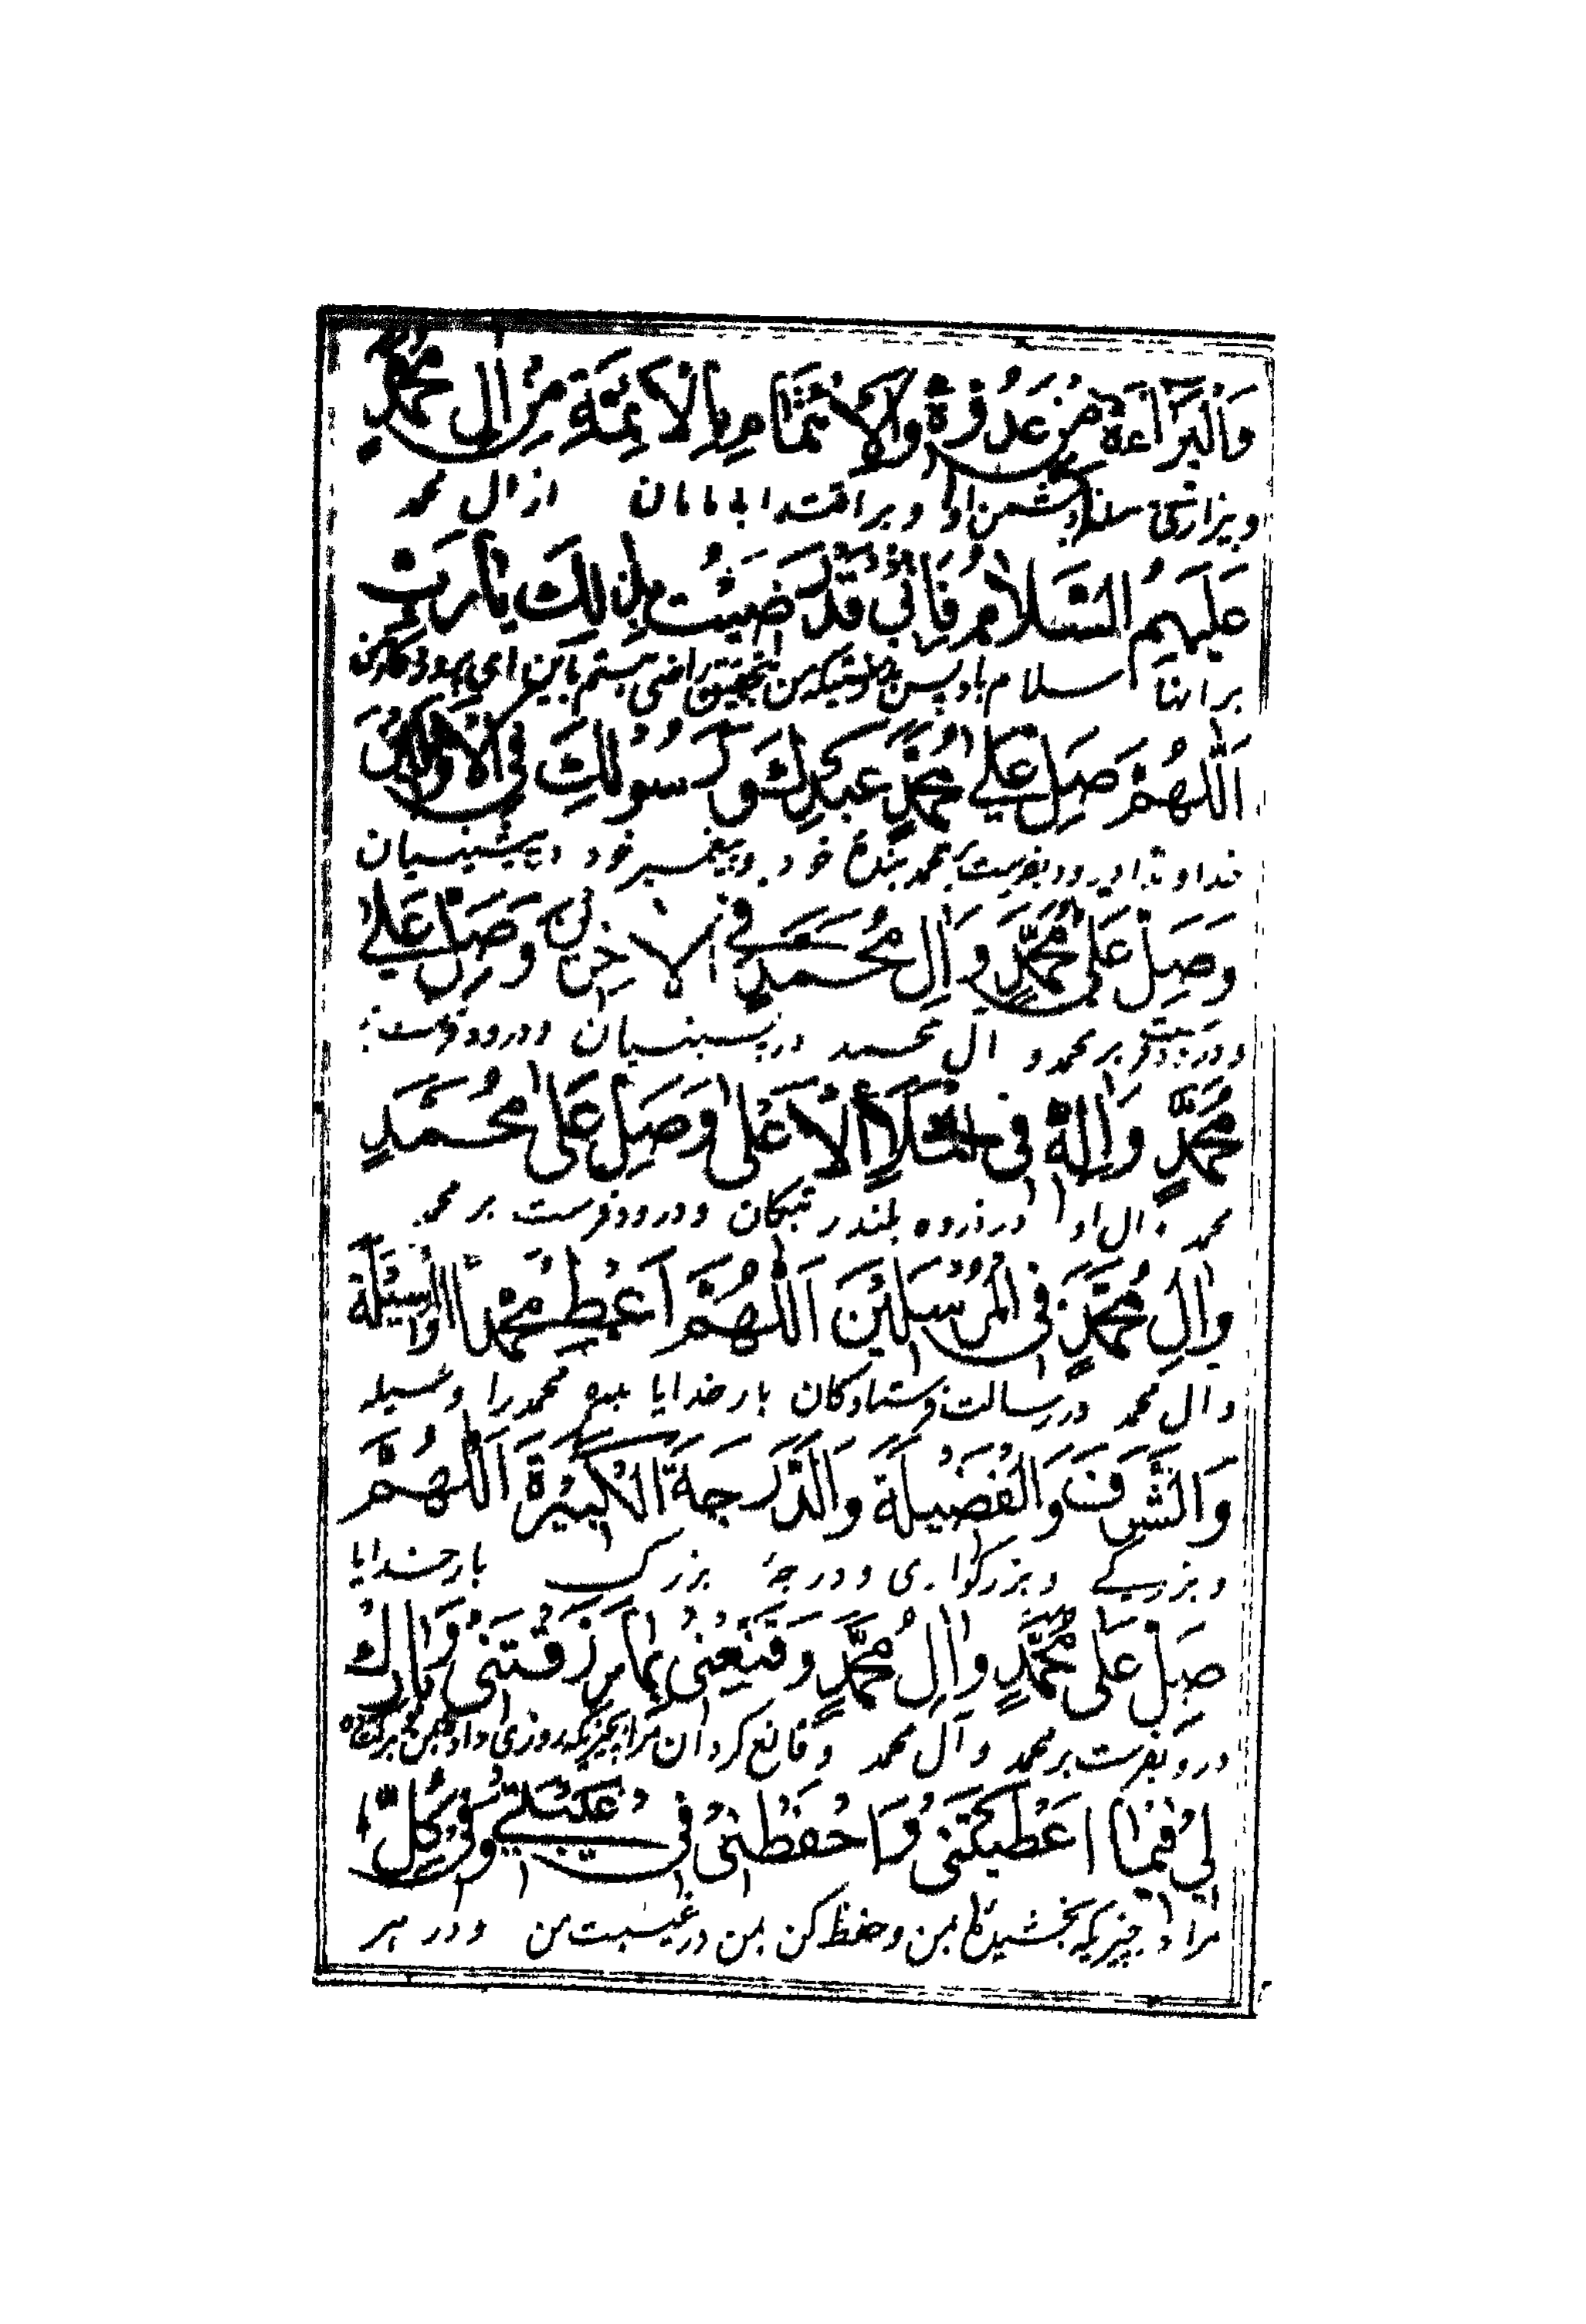 وَالْبَرَاءَةِ مِنْ عَدُوِّهِ وَالْاِئْتِمَامِ بِالْاَئِمَّةِ مِنْ اٰلِ مُحَمَّدٍ
و بیزار دشمن او و بر اقتدا بامامان از ال محمد
عَلَيْهِمُ السَّلَامُ فَاِنِّي قَدْ رَضِيْتُ بِذٰلِكَ يَا رَبِّ
بر انها سلام باد پس من بتحقیق راضی باین ای پروردکار من
اَللّٰهُمَّ صَلِّ عَلٰى مُحَمَّدٍ عَبْدِكَ وَرَسُوْلِكَ فِي الْاَوَّلِيْنَ
خداوندا درود بفرست بر محمد بندهٔ خود و پیغمبر خود در پیشینیان
وَصَلِّ عَلٰى مُحَمَّدٍ وَاٰلِ مُحَمَّدٍ فِي الْاٰخِرِيْنَ وَصَلِّ عَلٰى
و درود فرست بر محمد و ال محمد در پسینیان و درود فرست بر
مُحَمَّدٍ وَاٰلِهٖ فِي الْمَلَاِ الْاَعْلٰى وَصَلِّ عَلٰى مُحَمَّدٍ
محمد و ال او در ذروه بلند و درود فرست بر محمد
وَاٰلِ مُحَمَّدٍ فِي الْمُرْسَلِيْنَ اَللّٰهُمَّ اَعْطِ مُحَمَّدًا الْوَسِيْلَةَ
و ال محمد در رسالت فرستادکان بار خدایا بده محمد را وسیله
وَالشَّرَفَ وَالْفَضِيْلَةَ وَالدَّرَجَةَ الْكَبِيْرَةَ اَللّٰهُمَّ
و بزرگی و بزرکواری و درجهٔ بزرک بار خدایا
صَلِّ عَلٰى مُحَمَّدٍ وَاٰلِ مُحَمَّدٍ وَقَنِّعْنِيْ بِمَا رَزَقْتَنِيْ وَبَارِكْ
درود بفرست بر محمد و آل محمد و قانع کردان مرا بچیزیکه روزی دادهٔ بمن و برکت ده
لِيْ فِيْمَا اَعْطَيْتَنِيْ وَاحْفَظْنِيْ فِيْ غَيْبَتِيْ وَفِيْ كُلِّ
مرا در چیزیکه بخشیدهٔ بمن و حفظ کن بمن در غیبت من و در هر